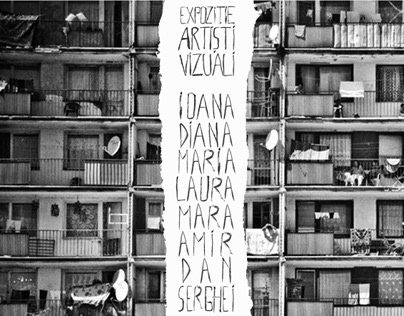 EXPOZITIE
ARTISTI
VIZUALI
IOANA
DIANA
MARIA
LAURA
MARA
AMIR
DAN
SERGHEI